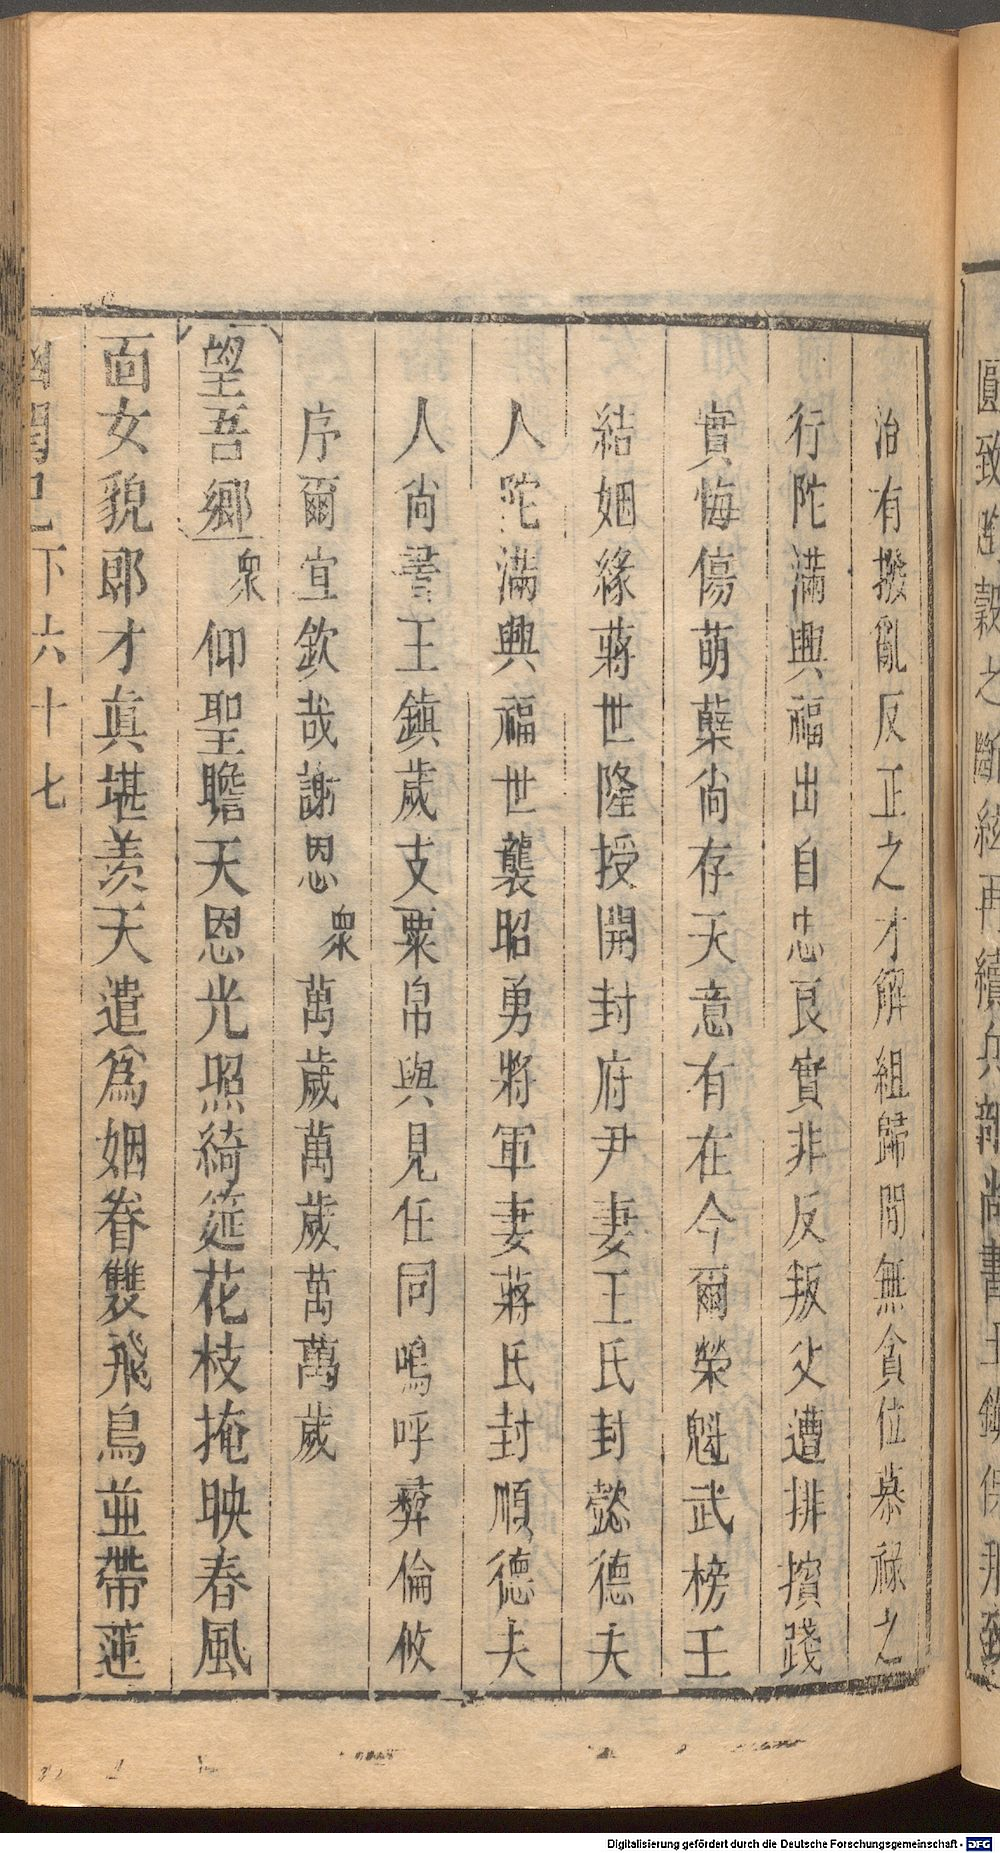 圓致
穀之斷絃再續兵部尚書王鎮保
治有撥亂反正之才解組歸閒無貪位慕祿之
行陀滿興福出自忠良實非反叛父遭排擯踐
實悔傷萌蘖尚存天意有在今爾榮魁武榜王
結姻緣蔣世隆授開封府尹妻王氏封懿德夫
人陀滿興福世襲昭勇將軍妻蔣氏封順德夫
人尚書王鎮歲支粟帛與見任同嗚呼彝倫攸
序爾宜欽哉謝恩衆萬歲萬歲萬萬歲
望吾鄉衆仰聖瞻天恩光照綺筵花枝掩映春風
面女貌郎才真堪羨天遣爲姻眷雙飛鳥並帶蓮
下六十七
Digitalisierung gefördert durch die Deutsche Forschungsgemeinschaft - DFG